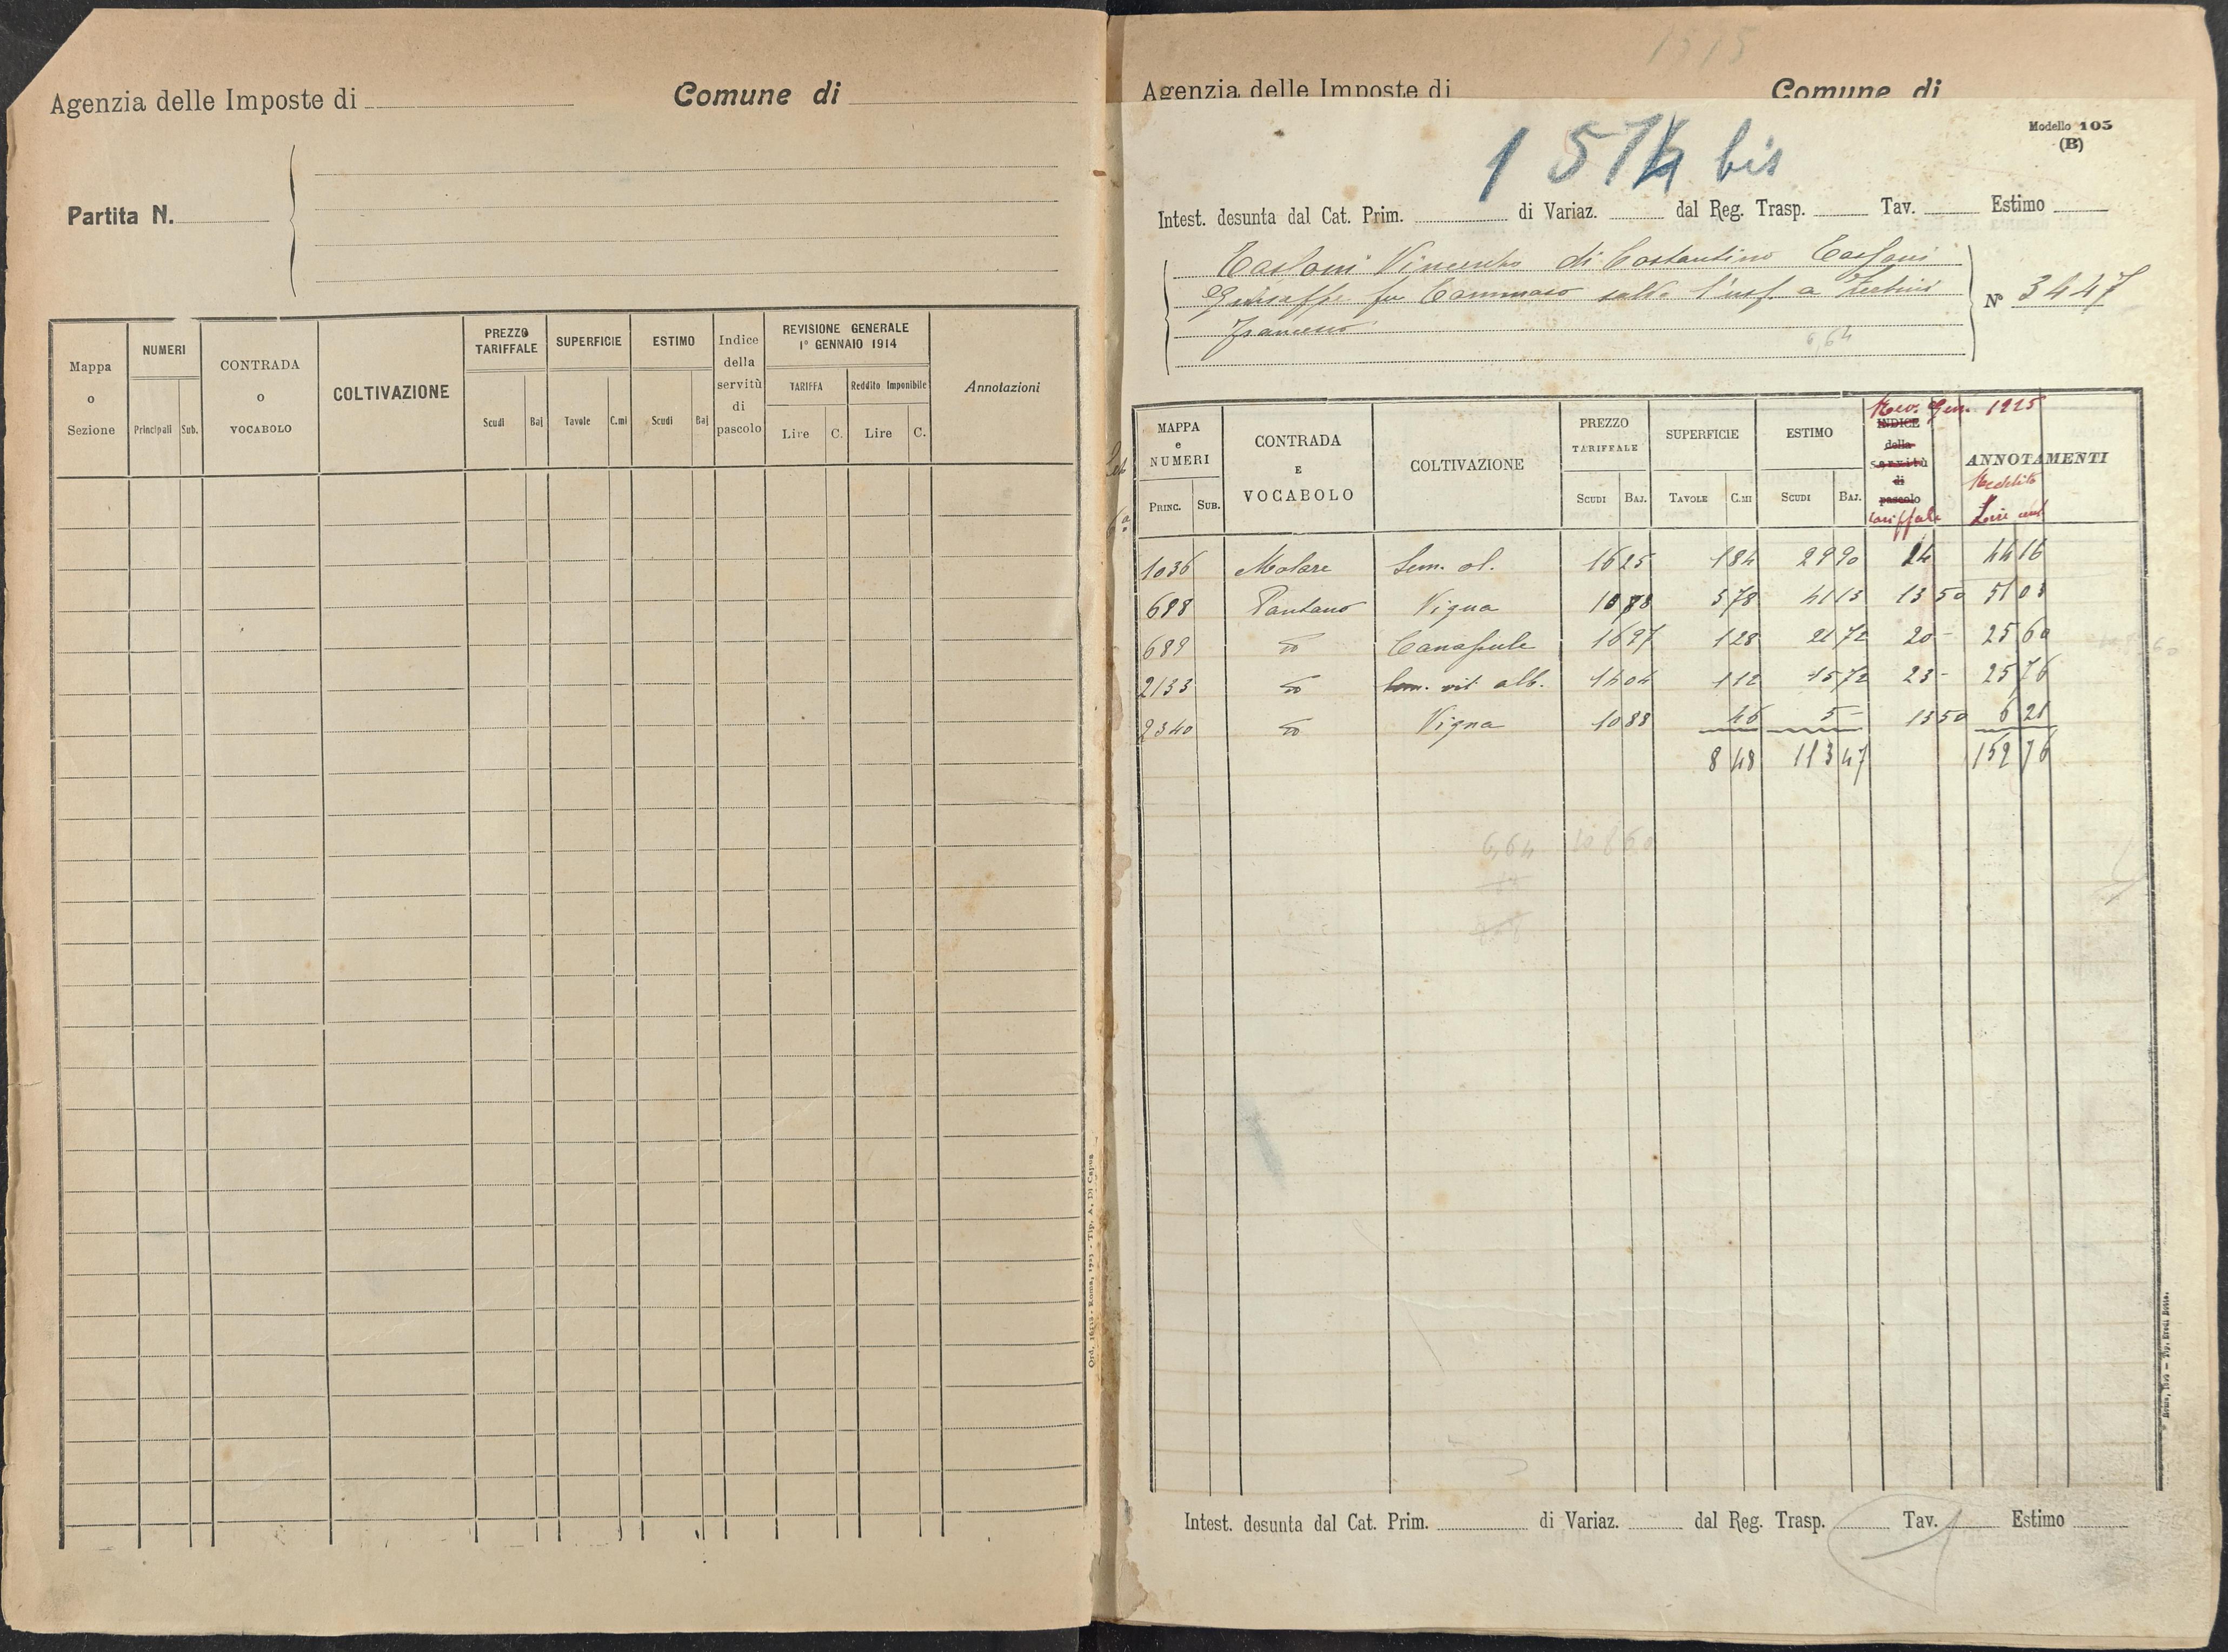 Agenzia delle Imposte di
Comune di
Partita N.
Mappa o Sezione
NUMERI
Principali Sub.
CONTRADA o VOCABOLO
COLTIVAZIONE
PREZZO TARIFFALE
Scudi Baj
SUPERFICIE
Tavole C.mi
ESTIMO
Scudi Baj
Indice della servitù di pascolo
REVISIONE GENERALE
1° GENNAIO 1914
TARIFFA
Lire C.
Reddito Imponibile
Lire C.
Annotazioni
Agenzia delle Imposte di
Comune di
Modello 103
(B)
bis
Intest. desunta dal Cat. Prim. di Variaz. dal Reg. Trasp. Tav. Estimo
Vincenzo di Costantino
fu Tommaso a
Francesco
N° 3447
6,64
Rev. Gen. 1925
MAPPA e NUMERI
PRINC. SUB.
CONTRADA E VOCABOLO
COLTIVAZIONE
PREZZO TARIFFALE
SCUDI BAJ.
SUPERFICIE
TAVOLE C.MI
ESTIMO
SCUDI BAJ.
INDICE della servitù di pascolo
tariffale
ANNOTAMENTI
Reddito
Lire cent
1036 Molare Sem. ol. 16 25 1 84 29 90 24 44 16
688 Pantano Vigna 10 88 3 78 41 13 13 50 51 03
689 Canapule 16 97 1 28 21 72 20 - 25 60
2133 vit alb. 14 04 1 12 15 72 23 - 25 76
2340 Vigna 10 88 46 5 - 13 50 6 21
8 48 113 47 152 76
6,64 108 60
Intest. desunta dal Cat. Prim. di Variaz. dal Reg. Trasp. Tav. Estimo